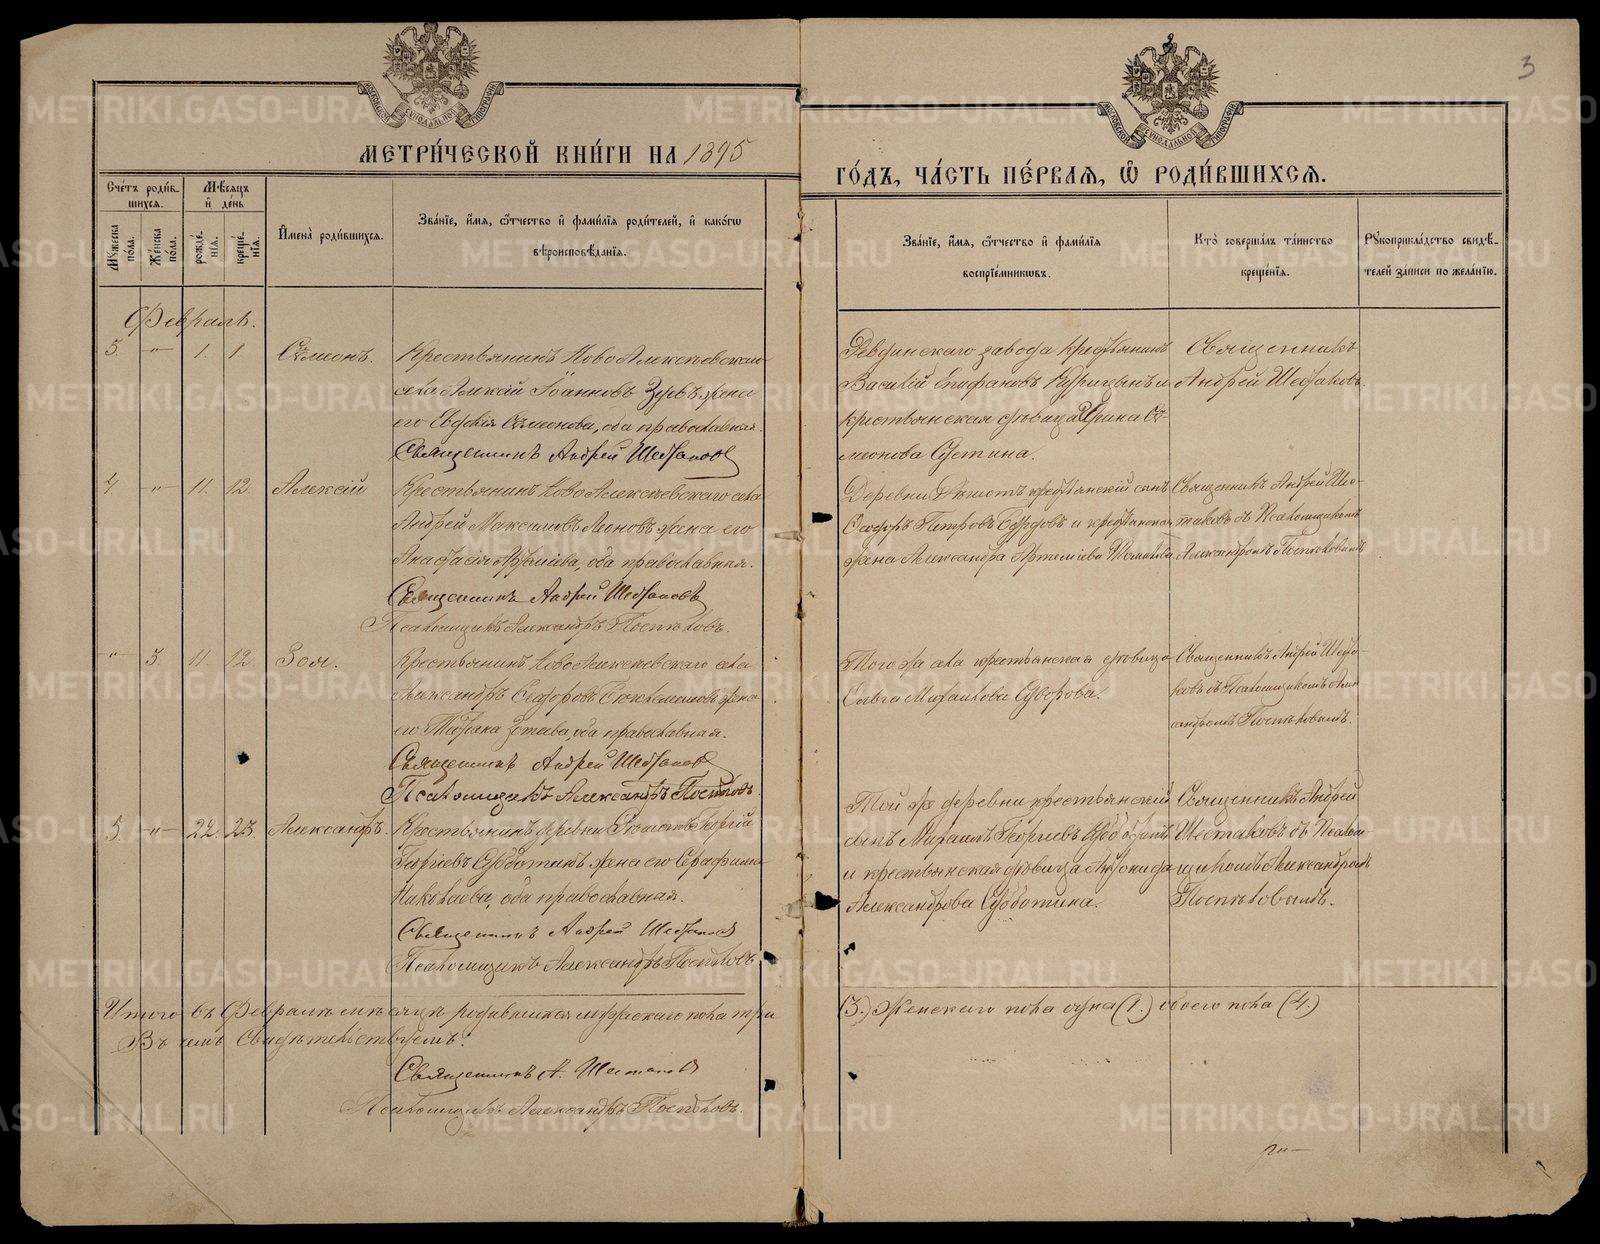 3
МЕТРИЧЕСКОЙ КНИГИ НА 1895
ГОДЪ, ЧАСТЬ ПЕРВАЯ, Ѽ РОДИВШИХСЯ.
Счетъ родившихся.
Мужеска пола.
Женска пола.
Мѣсяцъ и день
рожденія.
крещенія.
Имена родившихся.
Званіе, имя, ѿчество и фамилія родителей, и какогѡ
вѣроисповѣданія.
Званіе, имя, ѿчество и фамилія
воспріемникѡвъ.
Кто совершалъ таинство
крещенія.
Рукоприкладство свидѣ-
телей записи по желанію.
Февраль.
3. " 1. 1 Симеонъ.
Крестьянинъ Ново Алексѣевскаго
села Алексѣй Іоанновъ жена
его Евдокія Симеонова, оба православные.
Священникъ Андрей Шестаковъ
Ревдинскаго завода крестьянинъ
Василій Епифановъ и
крестьянская дѣвица Ирина Си-
меонова
Священникъ
Андрей Шестаковъ
4. " 11. 12. Алексій
Крестьянинъ Ново Алексѣевскаго села
Андрей Максимовъ Леоновъ жена его
Анастасія оба православные.
Священникъ Андрей Шестаковъ
Псаломщикъ Александръ Поспѣловъ.
Деревни крестьянскій сынъ
Ѳеодоръ Петровъ и крестьянская
жена Александра Артеміева
Священникъ Андрей Шес-
таковъ съ Псаломщикомъ
Александромъ Поспѣловымъ
" 3. 11. 12. Зоя.
Крестьянинъ Ново Алексѣевскаго села
Александръ жена
его оба православные.
Священникъ Андрей Шестаковъ
Псаломщикъ Александръ Поспѣловъ.
Того же села крестьянская дѣвица
Ольга Михайлова Суворова.
Священникъ Андрей Шеста-
ковъ съ Псаломщикомъ Алек-
сандромъ Поспѣловымъ.
5. " 22. 23. Александръ.
Крестьянинъ деревни Георгій
Георгіевъ Субботинъ жена его Серафима
Николаева, оба православные.
Священникъ Андрей Шестаковъ
Псаломщикъ Александръ Поспѣловъ
Той же деревни крестьянскій
сынъ Михаилъ Георгіевъ Субботинъ
и крестьянская дѣвица Антонида
Александрова Субботина.
Священникъ Андрей
Шестаковъ съ Псалом-
щикомъ Александромъ
Поспѣловымъ.
Итого въ Февралѣ мѣсяцѣ родившихся мужескаго пола три (3.) женскаго пола одна (1.) обоего пола (4.)
Въ чемъ свидѣтельствуемъ:
Священникъ А. Шестаковъ
Псаломщикъ Александръ Поспѣловъ.
METRIKI.GASO-URAL.RU